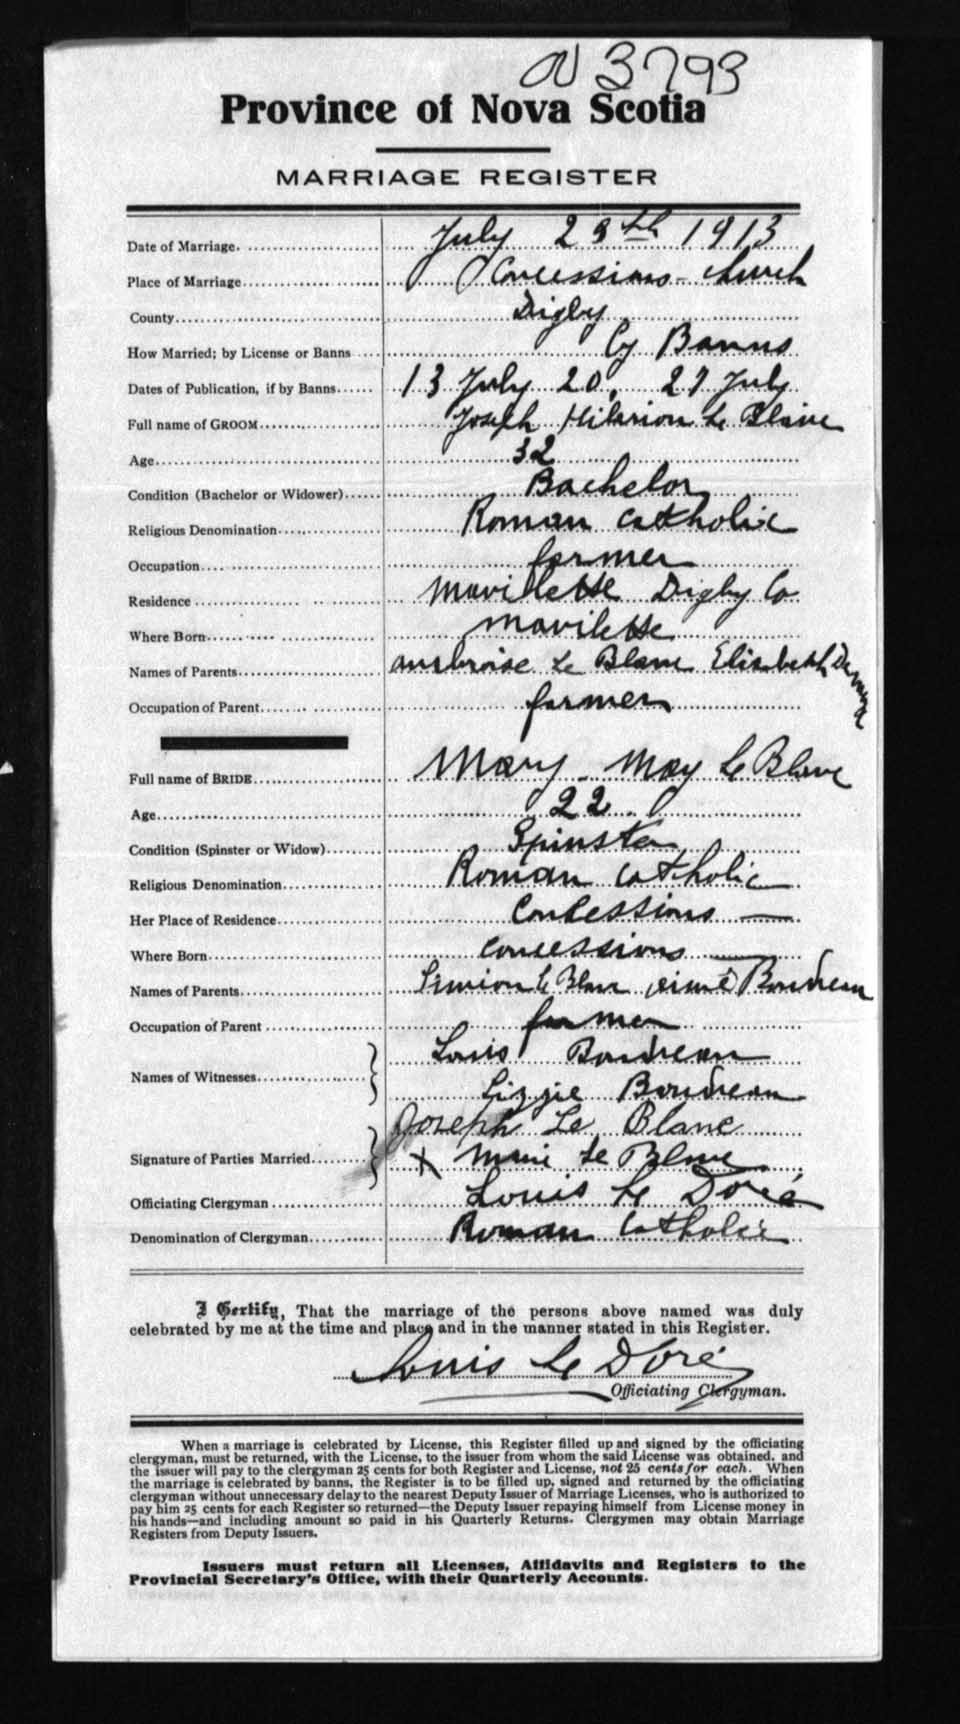 N 3793
Province of Nova Scotia
MARRIAGE REGISTER
Date of Marriage. July 29th 1913
Place of Marriage Concessions - church
County Digby
How Married; by License or Banns By Banns
Dates of Publication, if by Banns 13 July 20, 27 July
Full name of GROOM Joseph Hilarion Le Blanc
Age 32
Condition (Bachelor or Widower) Bachelor
Religious Denomination Roman Catholic
Occupation farmer
Residence Mavillette Digby Co
Where Born Mavilette
Names of Parents ambroise Le Blanc Elizabeth
Occupation of Parent farmer
Full name of BRIDE Mary May Le Blanc
Age 22
Condition (Spinster or Widow) Spinster
Religious Denomination Roman Catholic
Her Place of Residence Concessions
Where Born Concessions
Names of Parents Simion Le Blanc Boudreau
Occupation of Parent farmer
Names of Witnesses Louis Boudreau
Lizzie Boudreau
Signature of Parties Married Joseph Le Blanc
X Marie Le Blanc
Officiating Clergyman Louis Le Doré
Denomination of Clergyman Roman Catholic
I Certify, That the marriage of the persons above named was duly
celebrated by me at the time and place and in the manner stated in this Register.
Louis Le Doré
Officiating Clergyman.
When a marriage is celebrated by License, this Register filled up and signed by the officiating
clergyman, must be returned, with the License, to the issuer from whom the said License was obtained. and
the issuer will pay to the clergyman 25 cents for both Register and License, not 25 cents for each. When
the marriage is celebrated by banns, the Register is to be filled up, signed and returned by the officiating
clergyman without unnecessary delay to the nearest Deputy Issuer of Marriage Licenses, who is authorized to
pay him 25 cents for each Register so returned—the Deputy Issuer repaying himself from License money in
his hands—and including amount so paid in his Quarterly Returns. Clergymen may obtain Marriage
Registers from Deputy Issuers.
Issuers must return all Licenses, Affidavits and Registers to the
Provincial Secretary's Office, with their Quarterly Accounts.